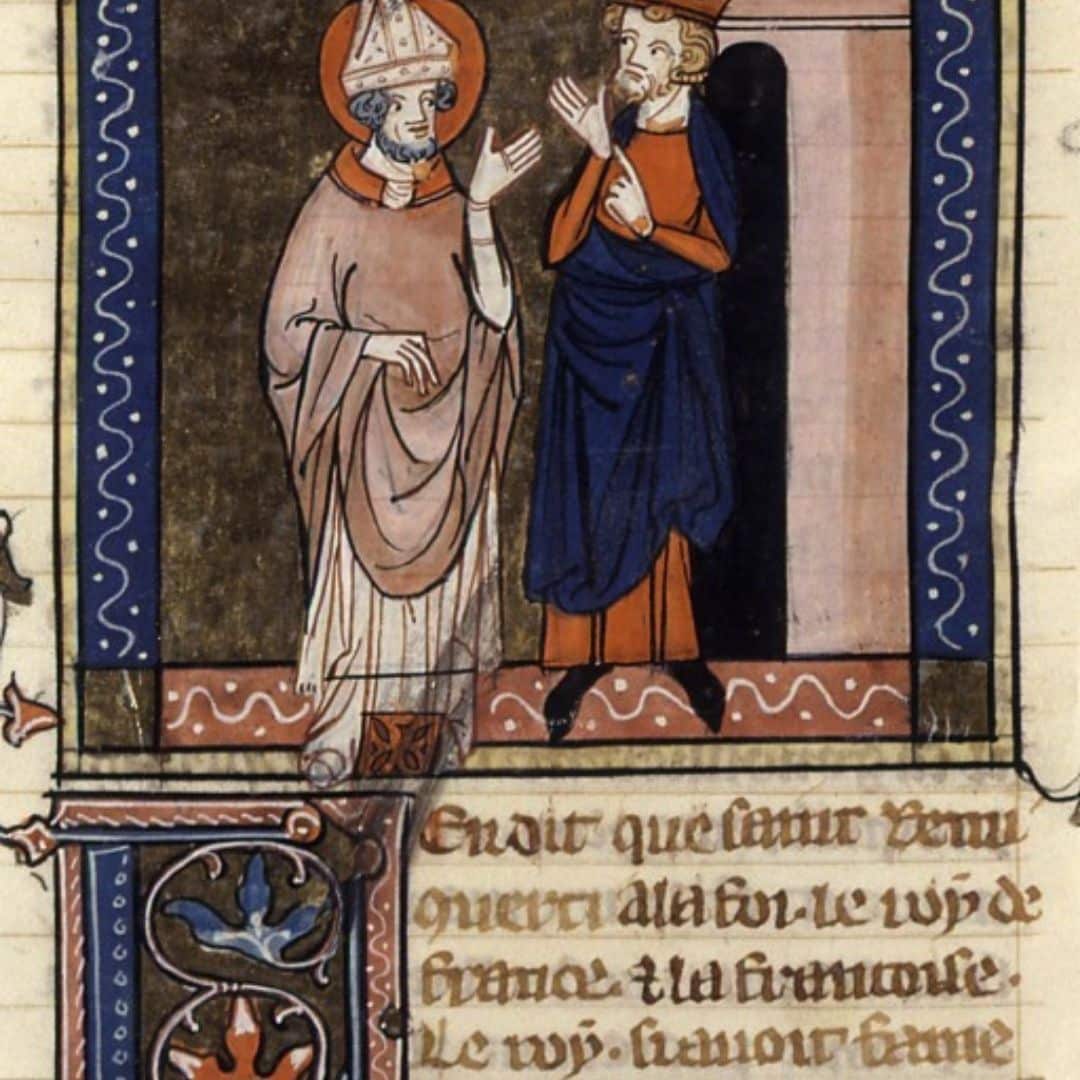 En dit que saint Remi
ꝯuerti a la foi. le roy de
france. ⁊ la francoise.
Le roy. si auoit fame